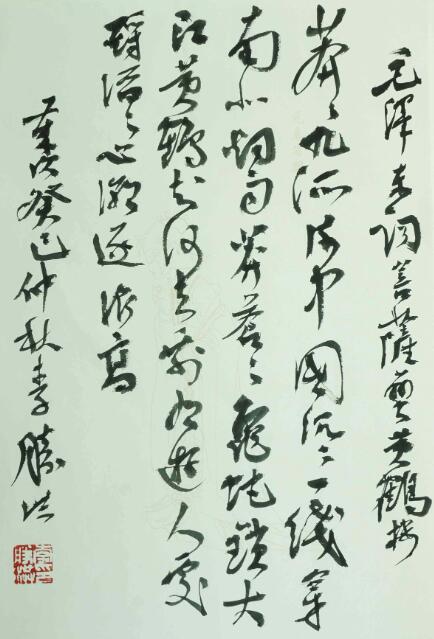 毛泽东词菩薩蛮黄鹤楼
茫〻九派流中國沉〻一线穿
南北烟雨莽苍〻龟蛇锁大
江黄鹤知何去剩有遊人处
酹滔〻心潮逐浪高
岁次癸巳仲秋李胜洪